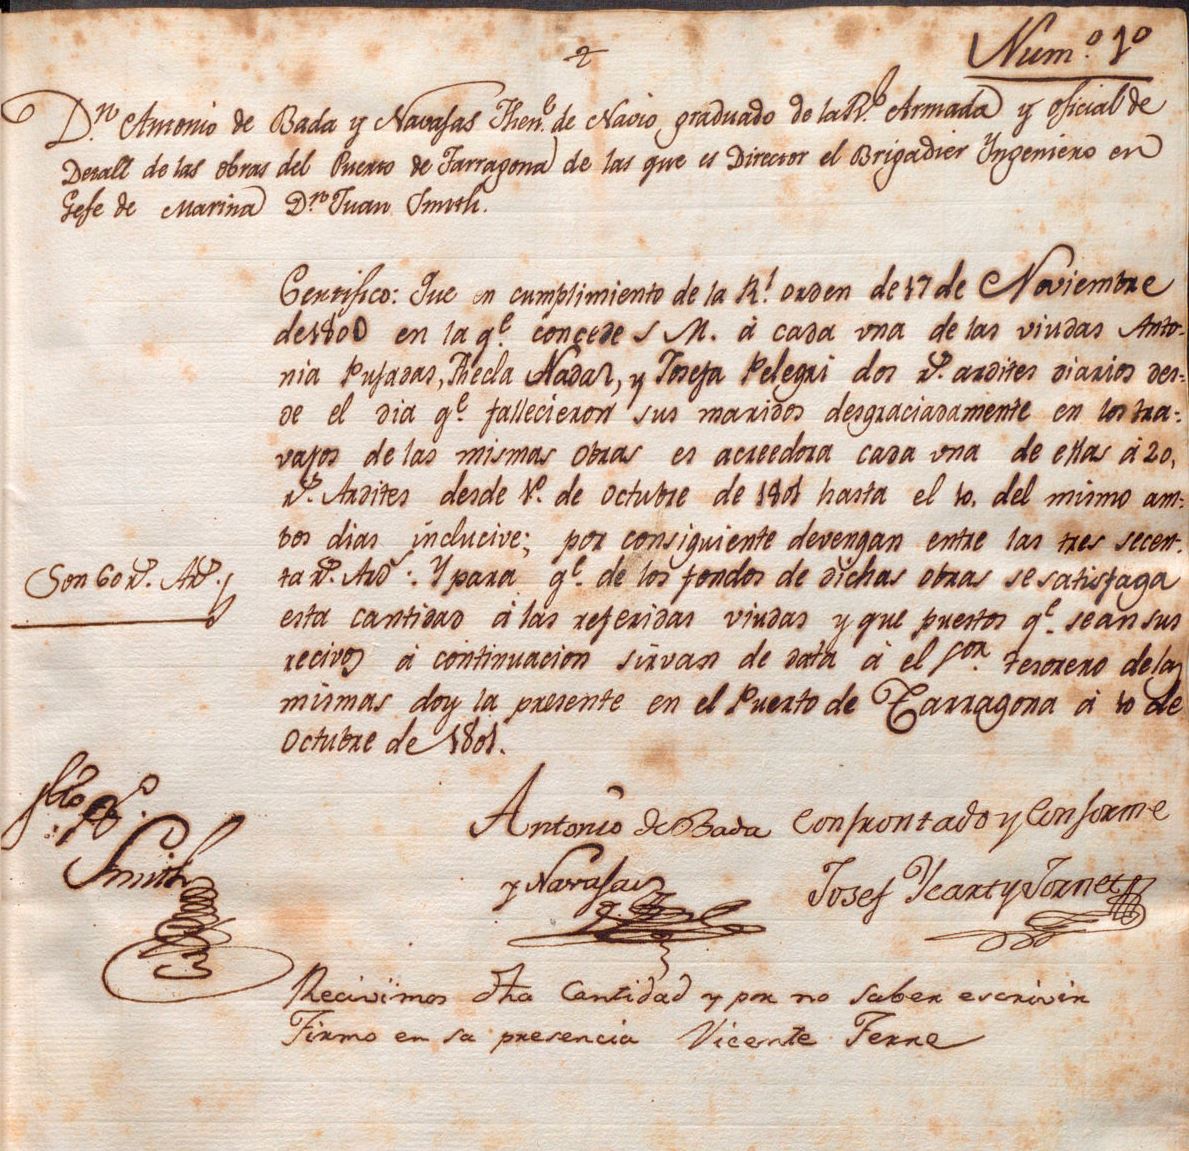 2
Num.º 1º
D.n Antonio de Bada y Navajas Then.e de Navio graduado de la R.l Armada y oficial de
Detall de las obras del Puerto de Tarragona de las que es Director el Brigadier Yngeniero en
Gefe de Marina D.n Juan Smith.
Certifico: Que en cumplimiento de la R.l orden de 17 de Noviembre
de 1800 en la q.e concede S M. á cada una de las viudas Anto-
nia Pujadas, Thecla Nadal, y Josefa Pelegri dos r.s ardites diarios des-
de el dia q.e fallecieron sus maridos desgraciadamente en los tra-
vajos de las mismas obras es acreedora cada una de ellas á 20,
r.s Ardites desde 1.º de Octubre de 1801 hasta el 10, del mismo am-
bos dias inclucive; por consiguiente devengan entre las tres secen-
ta r.s Ard.s: Y para q.e de los fondos de dichas obras se satisfaga
Son 60 r.s Ar.s
esta cantidad á las referidas viudas y que puestos q.e sean sus
recivos á continuacion sirvan de data á el S.or tesorero de las
mismas doy la presente en el Puerto de Tarragona á 10 de
Octubre de 1801.
Antonio de Bada Confrontado y Conforme
y Navajas Josef Ycart y Tornet
Smith
Recivimos dha Cantidad y por no saber escrivir
Firmo en sa presencia Vicente Ferre